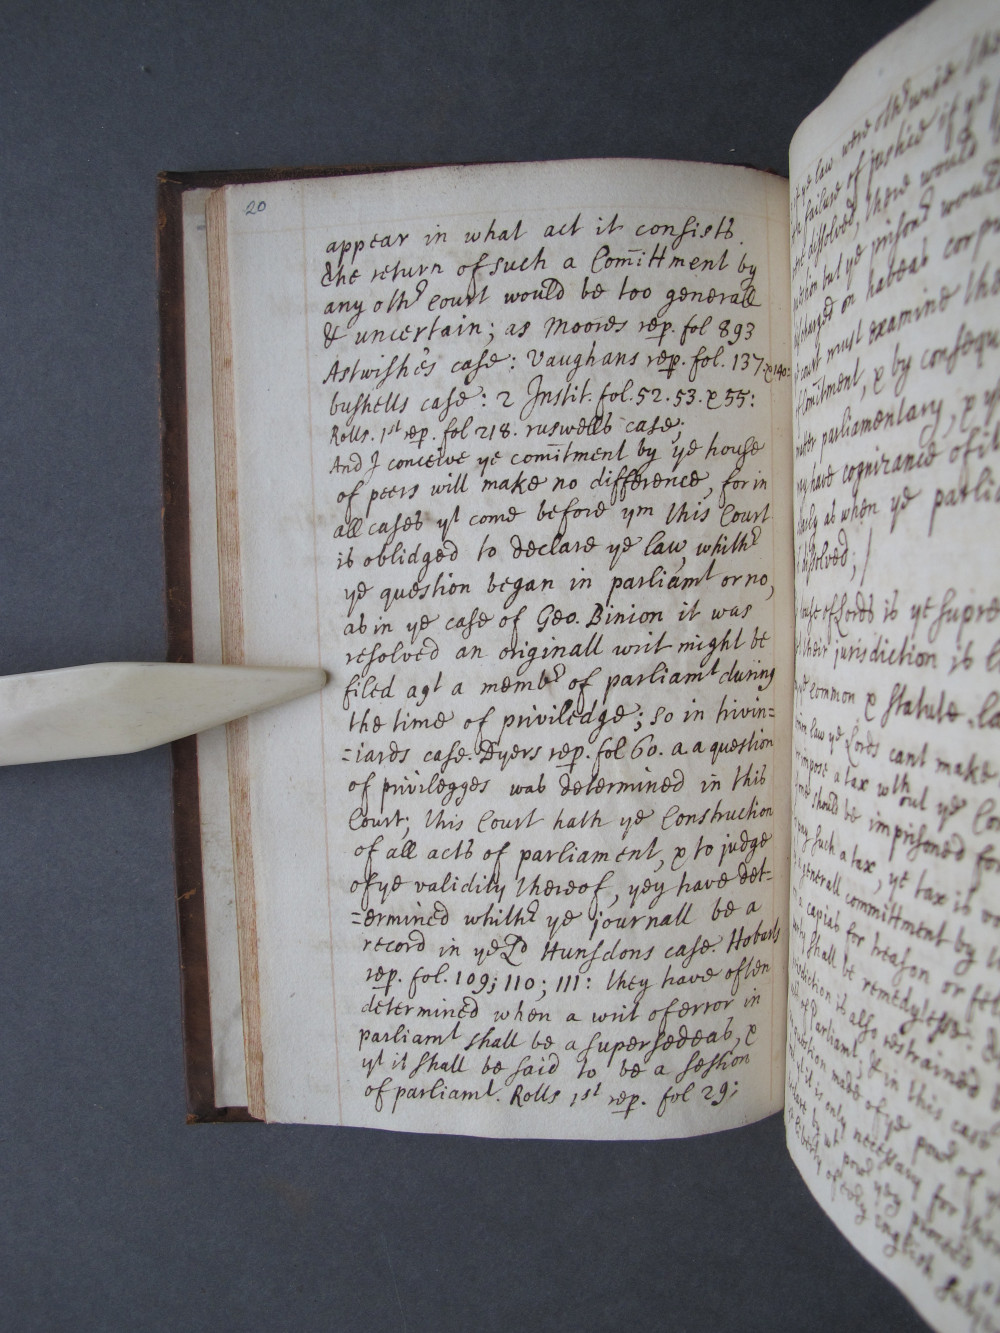 20
appear in what act it consists
the return of such a Com̄ittment by
any othr Court would be too generall
& uncertain; as Moores rep. fol 893
Astwishes case: Vaughans rep. fol. 137. & 140:
bushells case: 2 Instit. fol. 52. 53. & 55:
Rolls. 1st rep. fol 218. ruswells case;
And I conceive ye com̄itment by ye house
of peers will make no difference, for in
all cases yt come before ym this Court
is oblidged to declare ye law, whithr
ye question began in parliamt or no,
as in ye case of Geo. Binion it was
resolved an originall writ might be
filed agt a membr of parliamt during
the time of priviledge; so in trivin=
=iards case. Dyers rep. fol 60. a a question
of privilegges was determined in this
Court; this Court hath ye Construction
of all acts of parliament, & to judge
of ye validity thereof, yey have det=
=ermined whithr ye journall be a
record in ye Ld Hunsdons case. Hobarts
rep. fol. 109; 110; 111: they have often
determined when a writ of error in
parliamt shall be a supersedeas, &
yt it shall be said to be a session
of parliamt. Rolls 1st rep. fol 29;
ye law were othrwise
failure of justice if ye
dissolved, there would
but ye prisonr would
on habeas corpus
must examine the
& by consequ
parliamentary, &
have cognizance of it
as when ye parli
dissolved;
of Lords is ye supre
their jurisdiction is
common & statute la
law ye Lords cant make
impose a tax wthout ye Co
should be imprisoned for
such a tax, ye tax is
generall committment by
a capias for treason or fel
shall be remedylesse:
is also restrained
of Parliamt, & in this case
question made of ye powr of
it is only necessary for
by wt powr yey proceed
liberty of evry english